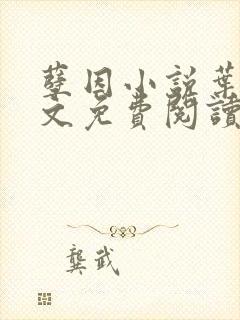 孽因小說葉
文免費閱讀
龔武